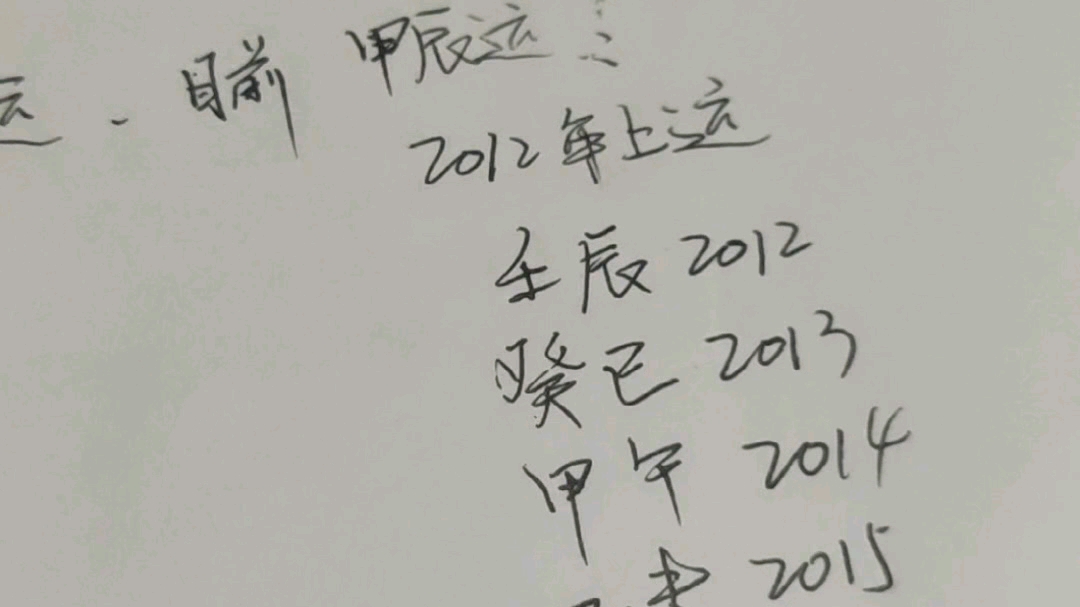 运、目前 甲辰运：
2012年上运
壬辰 2012
癸巳 2013
甲午 2014
未 2015